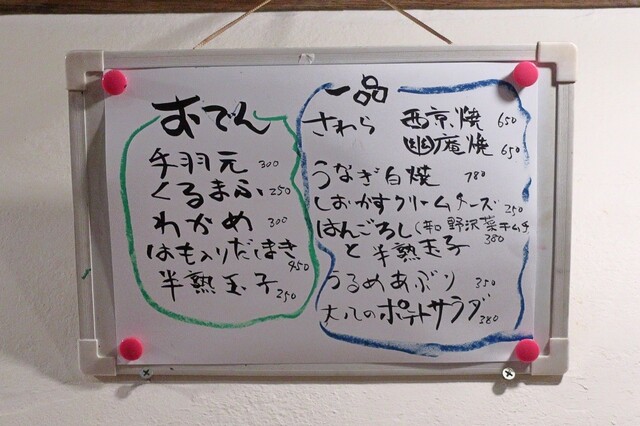 おでん
手羽元 300
くるまふ 250
わかめ 300
はも入りだまき 450
半熟玉子 250
一品
さわら 西京焼 650
幽庵焼 650
うなぎ白焼 780
しおかすクリームチーズ 250
はんごろし(辛口野沢菜キムチ
と半熟玉子 380
うるめあぶり 350
大人のポテトサラダ 380